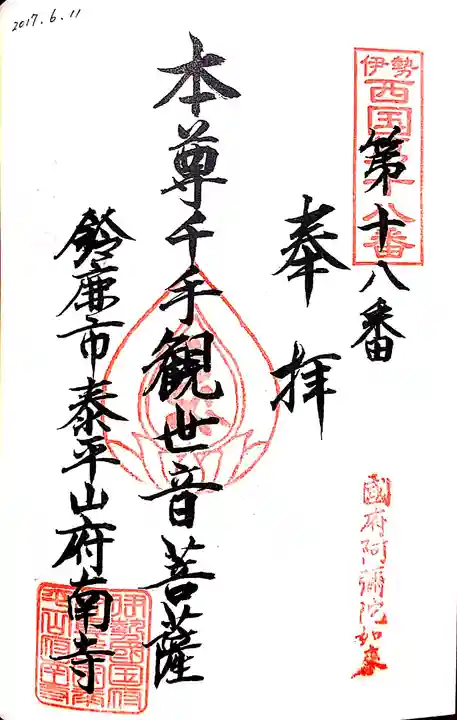 2017.6.11
伊勢
西国
八番
第十八番
奉拝
本尊千手観世音菩薩
鈴鹿市泰平山府南寺
國府阿彌陀如来